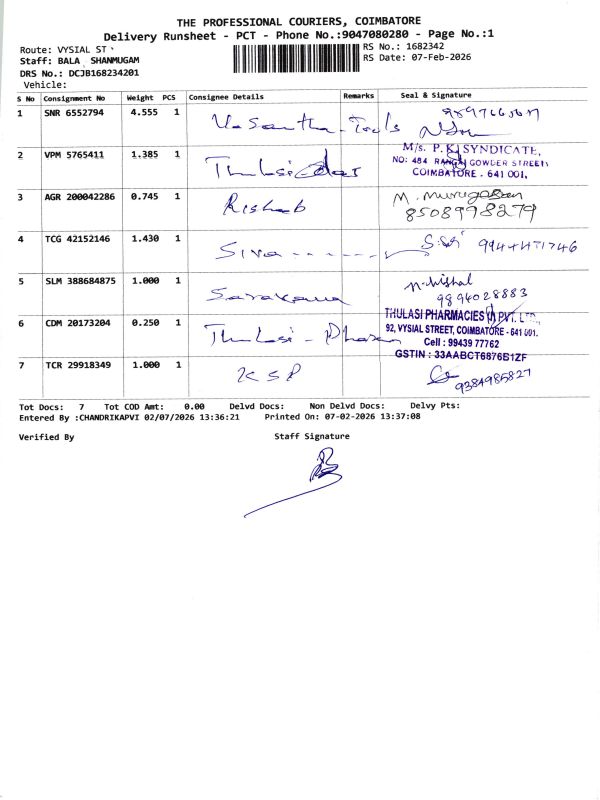 THE PROFESSIONAL COURIERS, COIMBATORE
Delivery Runsheet - PCT - Phone No.:9047080280 - Page No.:1
Route: VYSIAL ST
RS No.: 1682342
Staff: BALA SHANMUGAM
RS Date: 07-Feb-2026
DRS No.: DCJB168234201
Vehicle:
S No Consignment No Weight PCS Consignee Details Remarks Seal & Signature
1 SNR 6552794 4.555 1 Vasantha - Tools
2 VPM 5765411 1.385 1 Thulasi
M/s. P. K. SYNDICATE,
NO: 484 RANGAI GOWDER STREET,
COIMBATORE - 641 001.
3 AGR 200042286 0.745 1 Rishab M. Murugesan
8508998279
4 TCG 42152146 1.430 1 Siva
5 SLM 388684875 1.000 1 Saravana n. vishal
9894028883
6 CDM 20173204 0.250 1 Thulasi - Pharm
THULASI PHARMACIES PVT. LTD.
92, VYSIAL STREET, COIMBATORE - 641 001.
Cell : 99439 77762
GSTIN : 33AABCT6876B1ZF
7 TCR 29918349 1.000 1 KSP 9384985827
Tot Docs: 7 Tot COD Amt: 0.00 Delvd Docs: Non Delvd Docs: Delvy Pts:
Entered By :CHANDRIKAPVI 02/07/2026 13:36:21 Printed On: 07-02-2026 13:37:08
Verified By Staff Signature